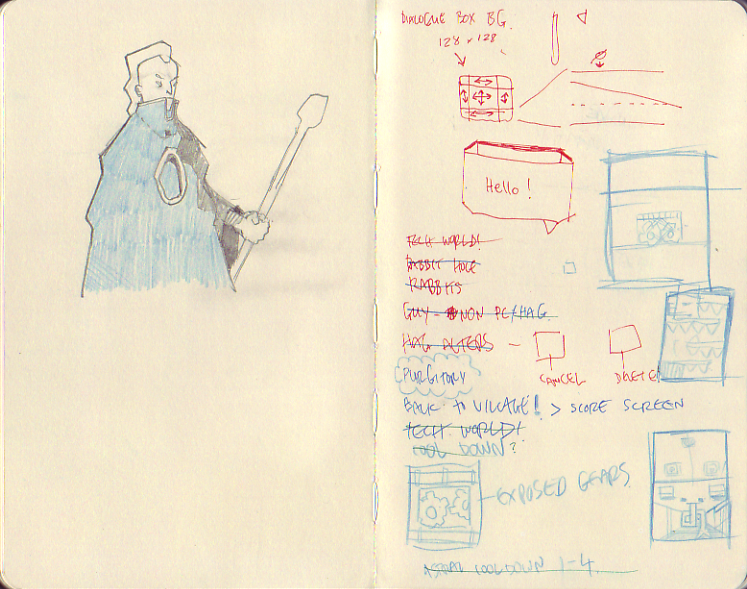 DIALOGUE BOX BG.
128 x 128
Hello!
TECH WORLD!
RABBIT HOLE
RABBITS
GUY - NON PC/HAG
HAG ALTERS -
CANCEL
DELETE
PURGITORY
BACK TO VILLAGE! > SCORE SCREEN
TECH WORLD!
COOL DOWN?
EXPOSED GEARS
COOLDOWN 1-4